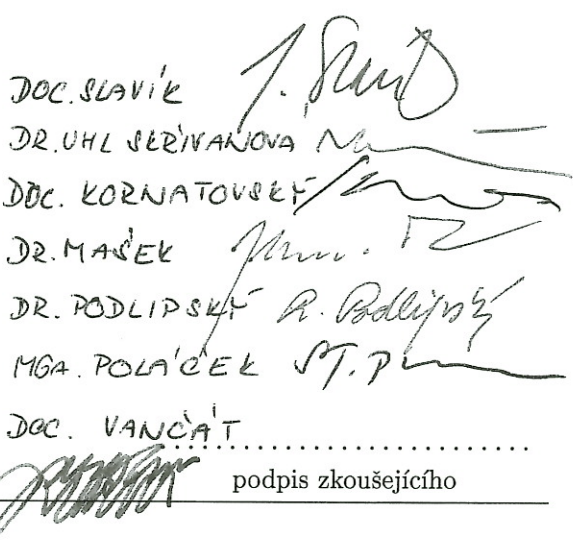 DOC. SLAVÍK J. Slavík
DR. UHL SKŘIVANOVA
DOC. KORNATOVSKÝ
DR. MAŠEK
DR. PODLIPSKÝ R. Podlipský
MGA. POLÁČEK ŠT. P
DOC. VANČÁT
podpis zkoušejícího